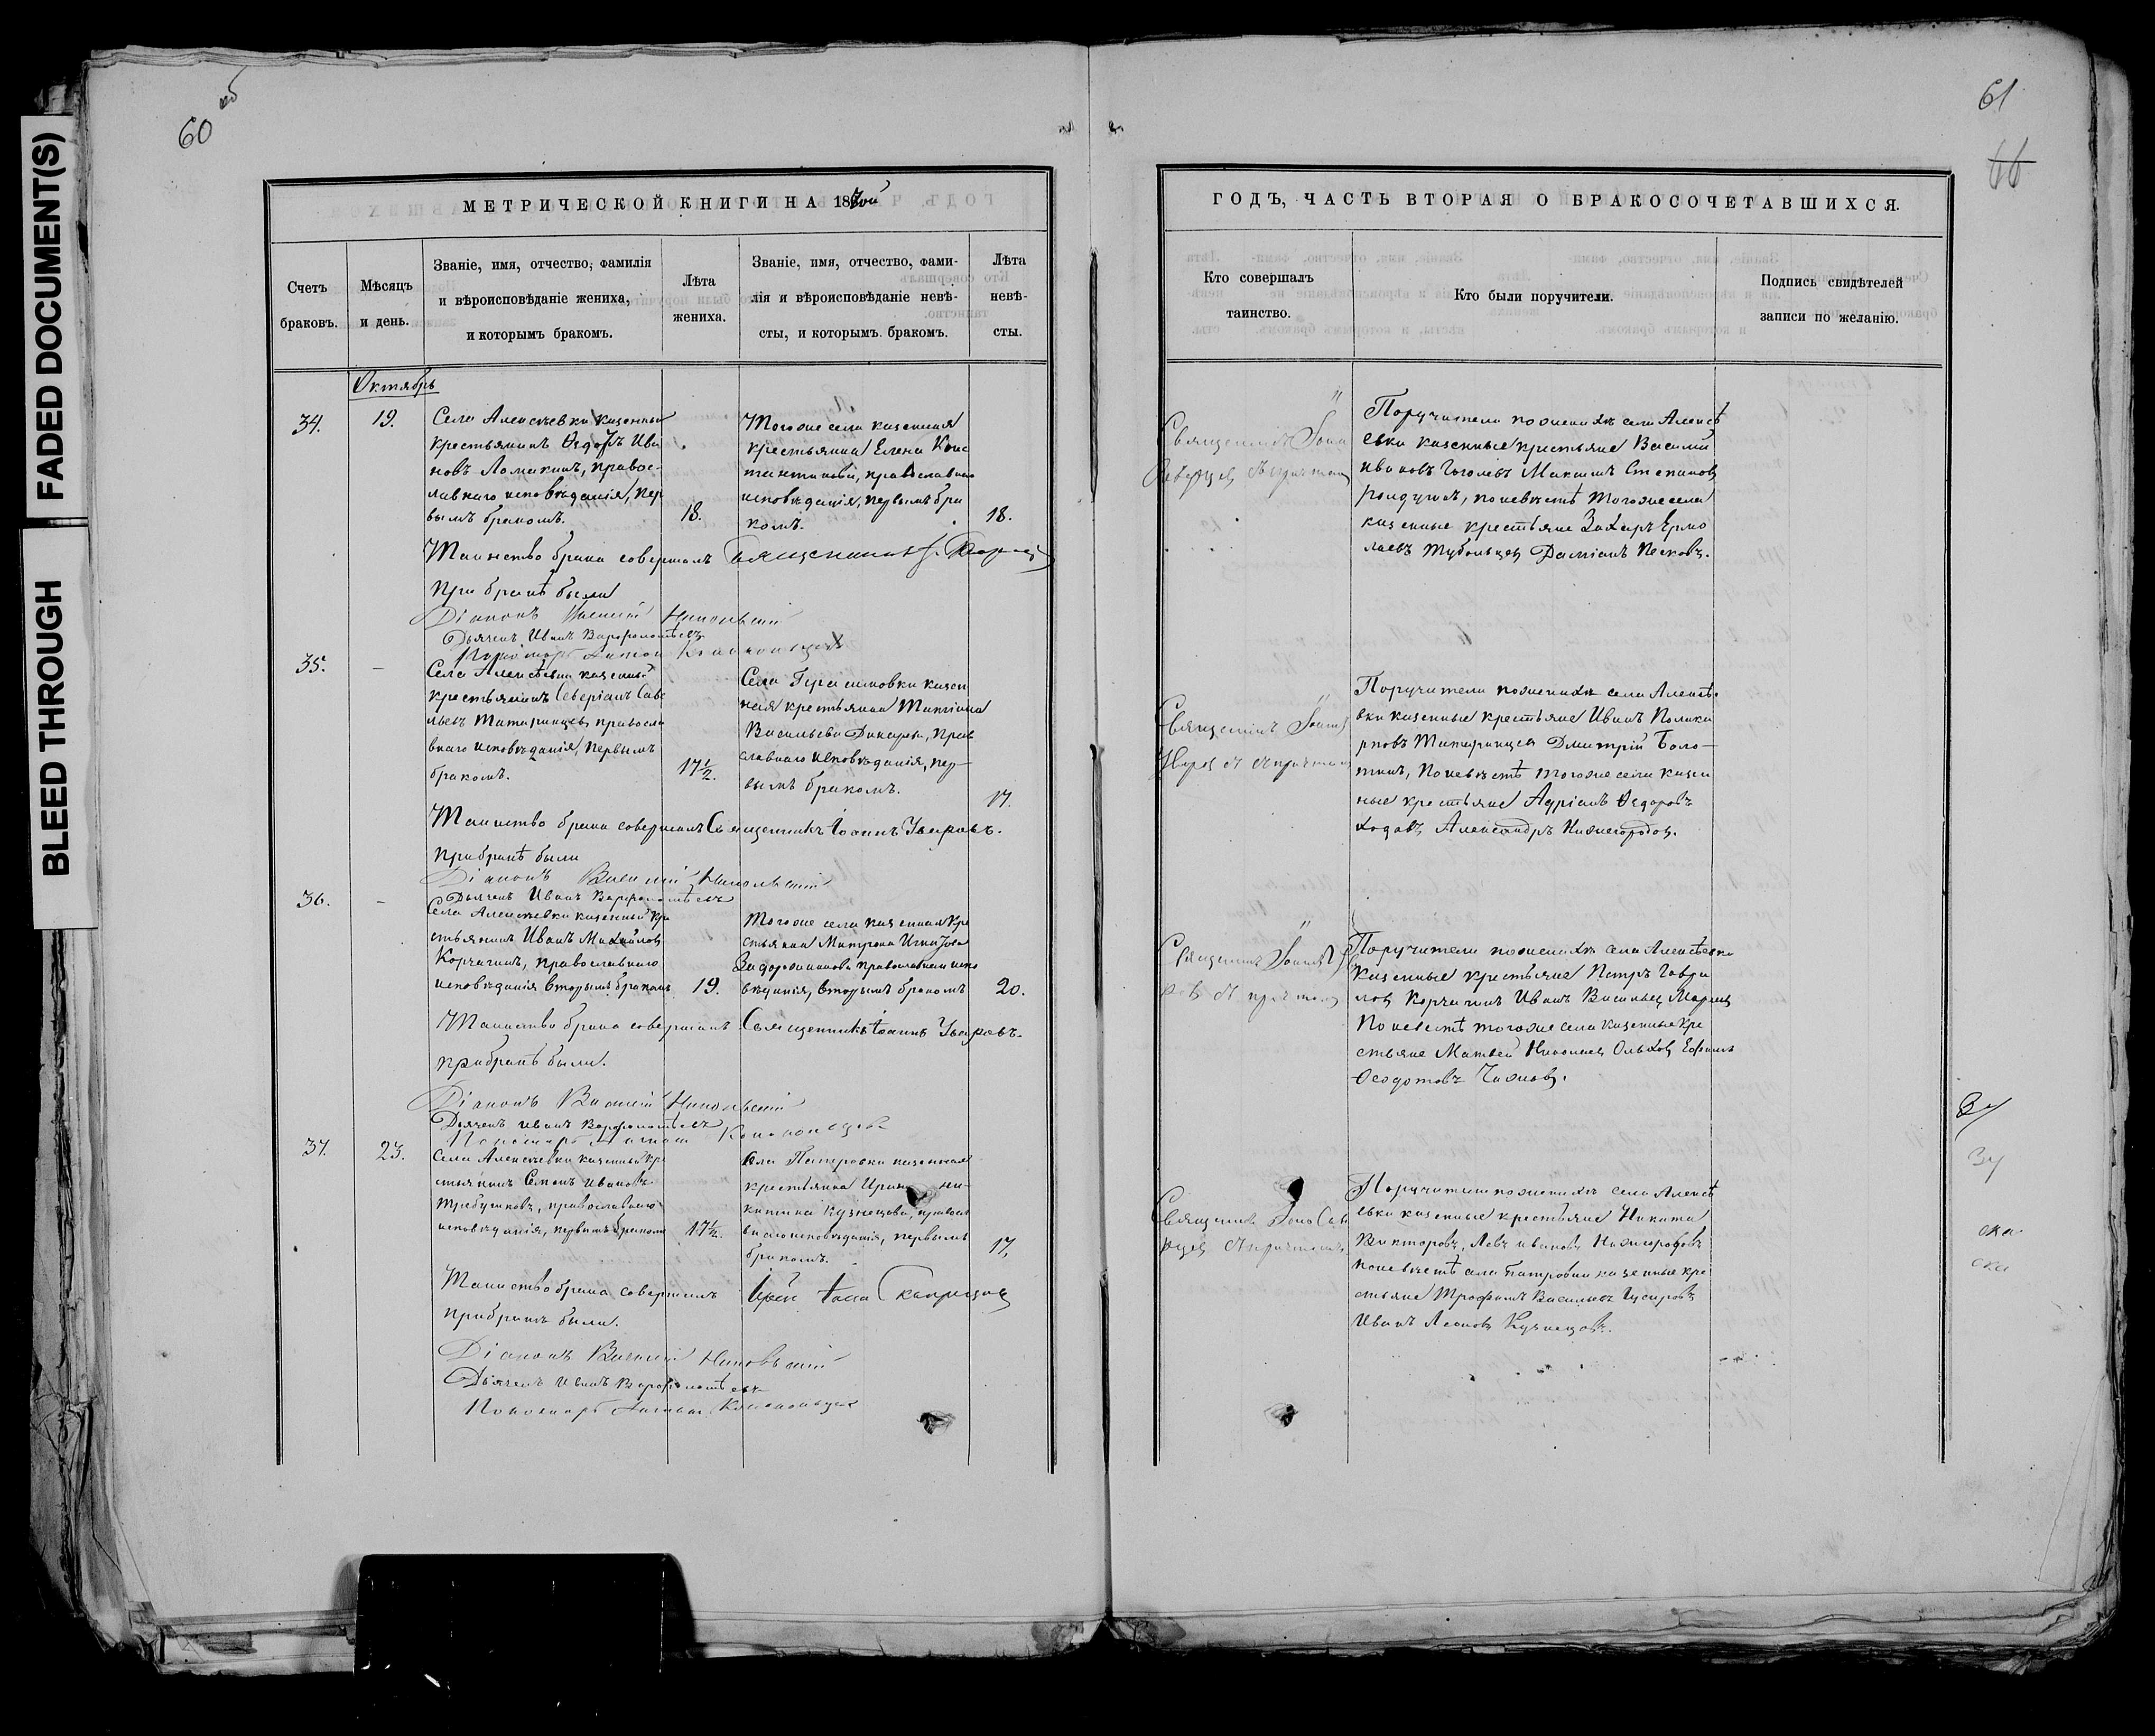 FADED DOCUMENT(S)
BLEED THROUGH
60 об
МЕТРИЧЕСКОЙ КНИГИ НА 1870й
Счетъ
браковъ.
Мѣсяцъ
и день.
Званіе, имя, отчество, фамилія
и вѣроисповѣданіе жениха,
и которымъ бракомъ.
Лѣта
жениха.
Званіе, имя, отчество, фами-
лія и вѣроисповѣданіе невѣ-
сты, и которымъ бракомъ.
Лѣта
невѣ-
сты.
Октябрь
34.
19.
Села Алексѣевки казенный
крестьянинъ Ѳедоръ Ива
новъ Ломакинъ, правос-
лавнаго исповѣданія, пер
вымъ бракомъ.
18.
Тогоже села казенная
крестьянка Елена Конс
тантинова, православнаго
исповѣданія, первымъ бра
комъ.
18.
Таинство брака совершалъ Священникъ
При бракѣ были
Діаконъ Василій Никольскій
Дьячекъ Иванъ Варфоломѣевъ
Пономарь
35.
–
Села Алексѣевки казенный
крестьянинъ Северіанъ Саве
льевъ Татаринцевъ правосла
внаго исповѣданія, первымъ
бракомъ.
17½.
Села Герасимовки казен
ная крестьянка Татіана
Васильева Дикарева, прав
славнаго исповѣданія, пер-
вымъ бракомъ.
17.
Таинство брака совершалъ Священникъ Іоаннъ Уваровъ.
При бракѣ были
Діаконъ Василій Никольскій
Дьячекъ Иванъ Варфоломѣевъ
36.
–
Села Алексѣевки казенный кре
стьянинъ Иванъ Михайловъ
Корчагинъ, православнаго
исповѣданія вторымъ бракомъ
19.
Тогоже села казенная кре
стьянка Матрона Игнатова
Задорожникова православнаго испо
вѣданія, вторымъ бракомъ
20.
Таинство брака совершалъ Священникъ Іоаннъ Уваровъ.
При бракѣ были.
Діаконъ Василій Никольскій
Дьячекъ Иванъ Варфоломѣевъ
Пономарь
37.
23.
Села Алексѣевки казенный кре
стьянинъ Семенъ Ивановъ
Трибушковъ, православнаго
исповѣданія, первымъ бракомъ
17½.
Села Патровки казенная
крестьянка Ирина Ни-
китина Кузнецова, правосла
внаго исповѣданія, первымъ
бракомъ.
17,
Таинство брака совершалъ Іерей Іона Скворцовъ
При бракѣ были.
Діаконъ Василій Никольскій
Дьячекъ Иванъ Варфоломѣевъ
Пономарь
61
66
ГОДЪ, ЧАСТЬ ВТОРАЯ О БРАКОСОЧЕТАВШИХСЯ.
Кто совершалъ
таинство.
Кто были поручители.
Подпись свидѣтелей
записи по желанію.
Священникъ Іона
Скворцовъ съ причтомъ
Поручители по женихѣ села Алексѣ
евки казенные крестьяне Василій
Ивановъ Гоголевъ Максимъ Степановъ
по невѣстѣ тогоже села
казенные крестьяне Захаръ Ермо
лаевъ Тубольцевъ Даміанъ Песковъ.
Священникъ Іоаннъ
Уваровъ съ причтомъ
Поручители по женихѣ села Алексѣе
вки казенные крестьяне Иванъ Полика
рповъ Татаринцевъ Дмитрій Боло-
тинъ, по невѣстѣ тогоже села казен
ные крестьяне Адріанъ Ѳедоровъ
Ходовъ Александръ Нижегородовъ.
Священникъ Іоаннъ Ува
ровъ съ причтомъ
Поручители по женихѣ села Алексѣевки
казенные крестьяне Петръ Гаври
ловъ Корчагинъ Иванъ Васильевъ
По невѣстѣ тогоже села казенные кре
стьяне Матвей Николаевъ Ольховъ Ефимъ
Ѳеодотовъ Чижовъ.
Священникъ Іона Скво
рцовъ съ причтомъ
Поручители по женихѣ села Алексѣ
евки казенные крестьяне Никита
Викторовъ, Левъ Ивановъ Нижегородовъ
по невѣстѣ села Патровки казенные кре
стьяне Трофимъ Васильевъ
Иванъ Леоновъ Кузнецовъ.